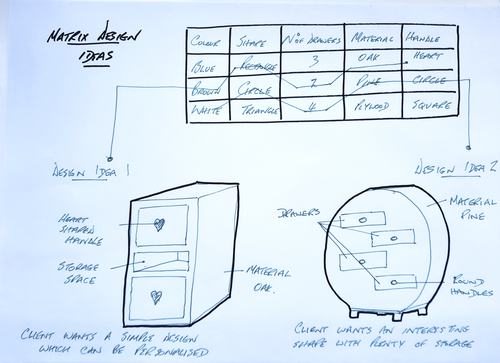 MATRIX DESIGN
IDEAS
COLOUR SHAPE NO OF DRAWERS MATERIAL HANDLE
BLUE RECTANGLE 3 OAK HEART
BROWN CIRCLE 2 PINE CIRCLE
WHITE TRIANGLE 4 PLYWOOD SQUARE
DESIGN IDEA 1
DESIGN IDEA 2
HEART
SHAPED
HANDLE
STORAGE
SPACE
MATERIAL
OAK.
DRAWERS
MATERIAL
PINE
ROUND
HANDLES
CLIENT WANTS A SIMPLE DESIGN
WHICH CAN BE PERSONALISED
CLIENT WANTS AN INTERESTING
SHAPE WITH PLENTY OF STORAGE